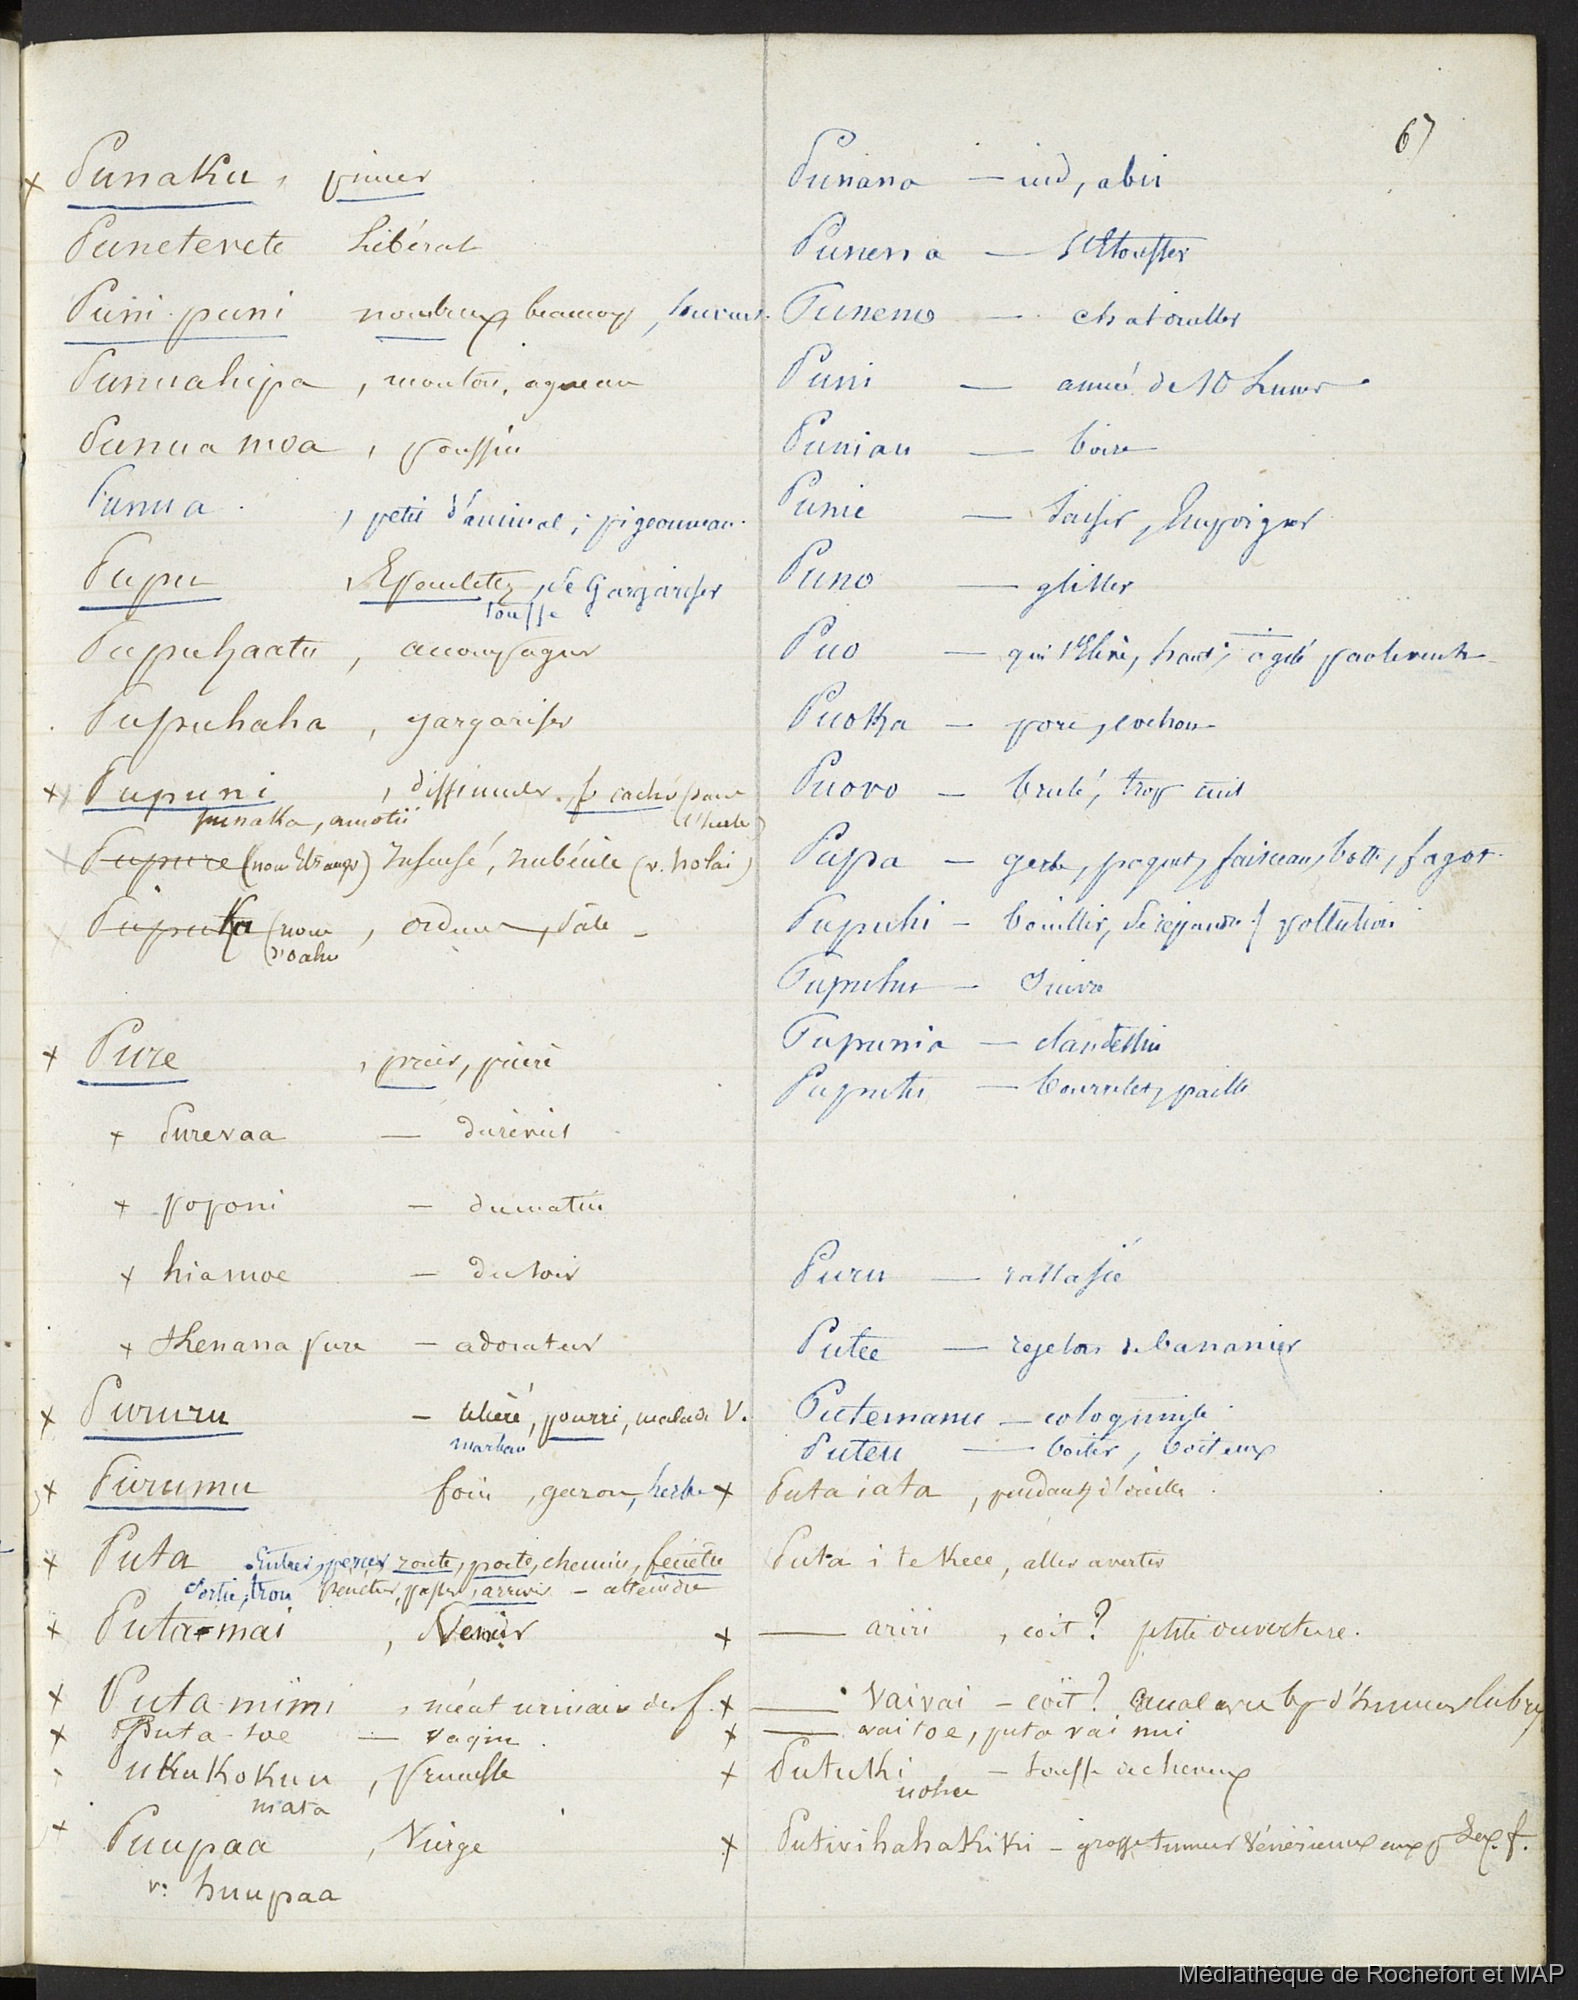 67
x Punaku, pincer
Punetevete Libéral
Puni puni nombreux, beaucoup, souvent.
Punuahipa, mouton, agneau
Punua moa, poussin
Punua, petit d'animal, pigeonneau.
Pupu, Epaulette, se Gargariser
touffe
Pupuhaatu, accompagner
Pupuhaha, gargariser
x Pupuni, dissimuler, se cacher (dans l'herbe)
punaka, amotii
Pupure (nom étranger) Insensé, imbécile (v. holai)
Pupuka (nom d'oahu, ordure, sale -
x Pure, prier, prière
x Purevaa — du réveil
x popoui — du matin
x hiamoe — du soir
x thenana pure — adorateur
x Pururu — ulcéré, pourri, malade V.
x Purumu foin, gazon, herbe
x Puta Entrer, percer, route, porte, chemin, fenêtre
Sortie, trou pénétrer, passer, arriver - atteindre
x Puta-mai, Venir
x Puta-mimi, méat urinaire des f.
x Puta-toe — vagin.
ukukokuu, prunelle
mata
x Puupaa, Vierge
v: huupaa
Punana — nid, abri
Punena — S'Etouffer
Puneno — chatouiller
Puni — année de 10 Lunes
Puniau — boire
Punie — Saisir, Empoigner
Puno — glisser
Puo — qui s'Elève, haut, agité par le vent
Puoka — porc, cochon
Puovo — brulé, trop cuit
Pupa — gerbe, paquet, faisceau, botte, fagot.
Pupuhi — bouillir, se répandre / pollution
Pupuhu — Suivre
Pupunia — clandestin
Puputu — bourrelet, paille
Puru — rassasié
Putee — rejeton de bananier
Putemanu — coloquinte
Puteu — boiter, boiteux
x Puta iata, pendants d'oreille.
Puta i te Keee, aller avertir
x — ariri, coït? petite ouverture.
x — vaivai — coït?
x — vaitoe, puta vai nui
x Putuki — touffe de cheveux
uohu
x Putivihahakiki — grosse tumeur Vénérienne